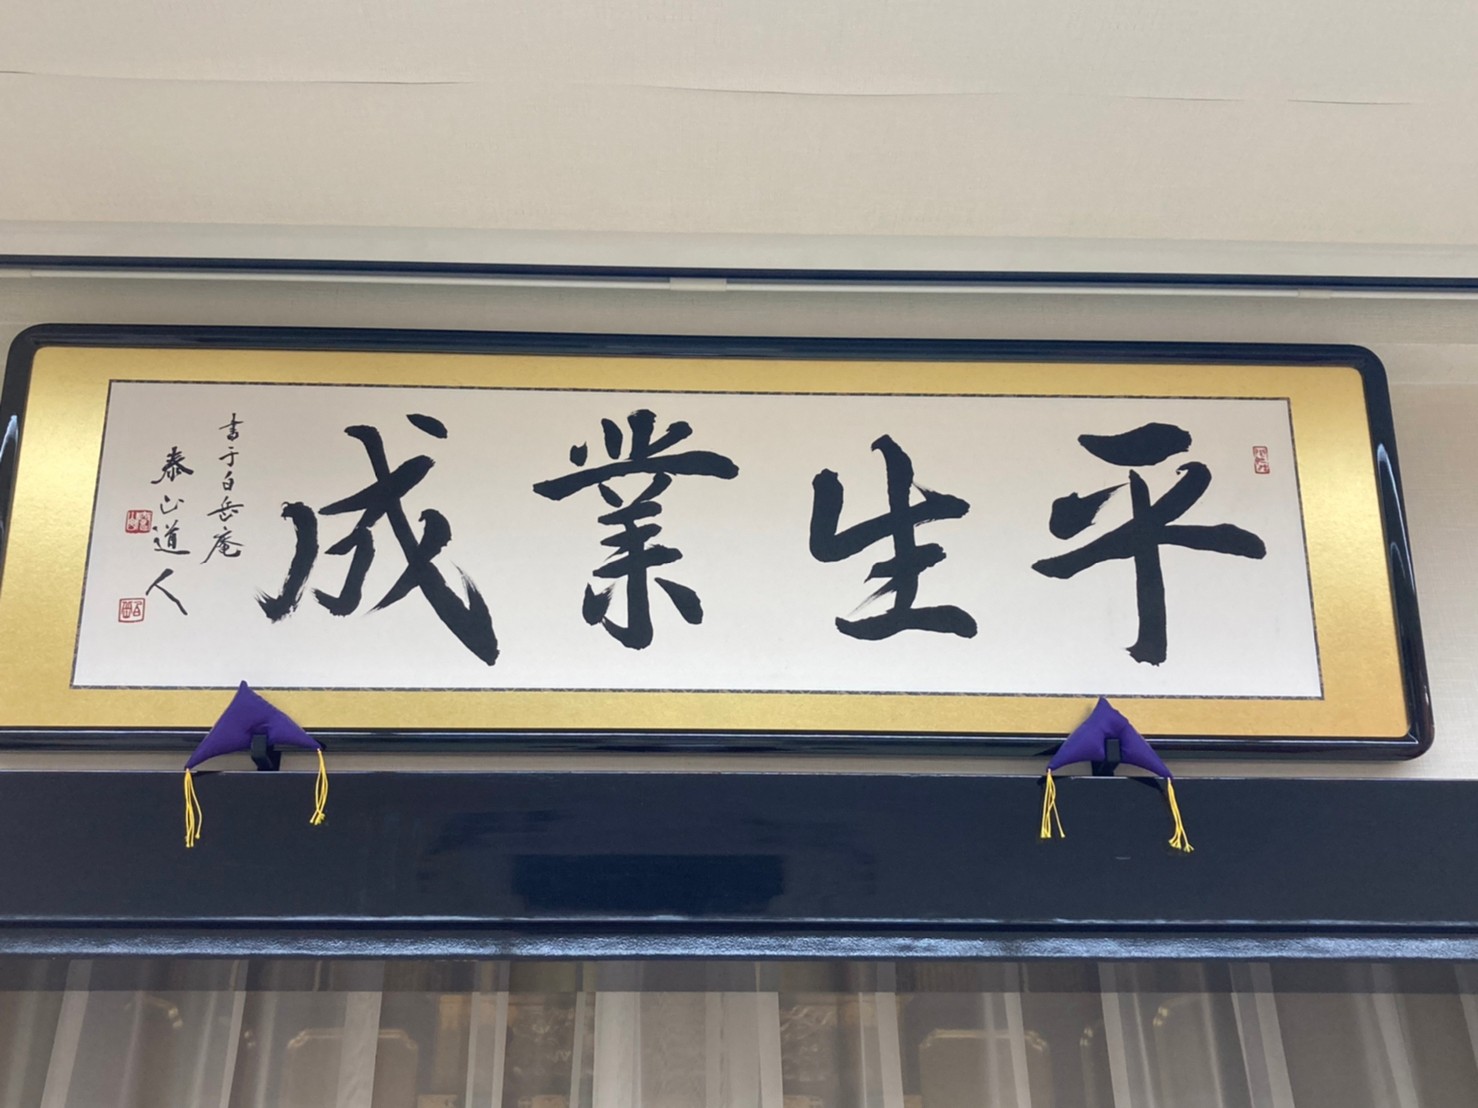 平生業成
書于白岳庵
泰山道人